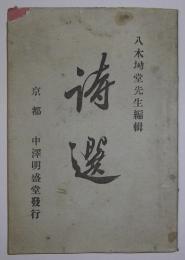 八木坰堂先生編輯
詩選
京都　中澤明盛堂發行